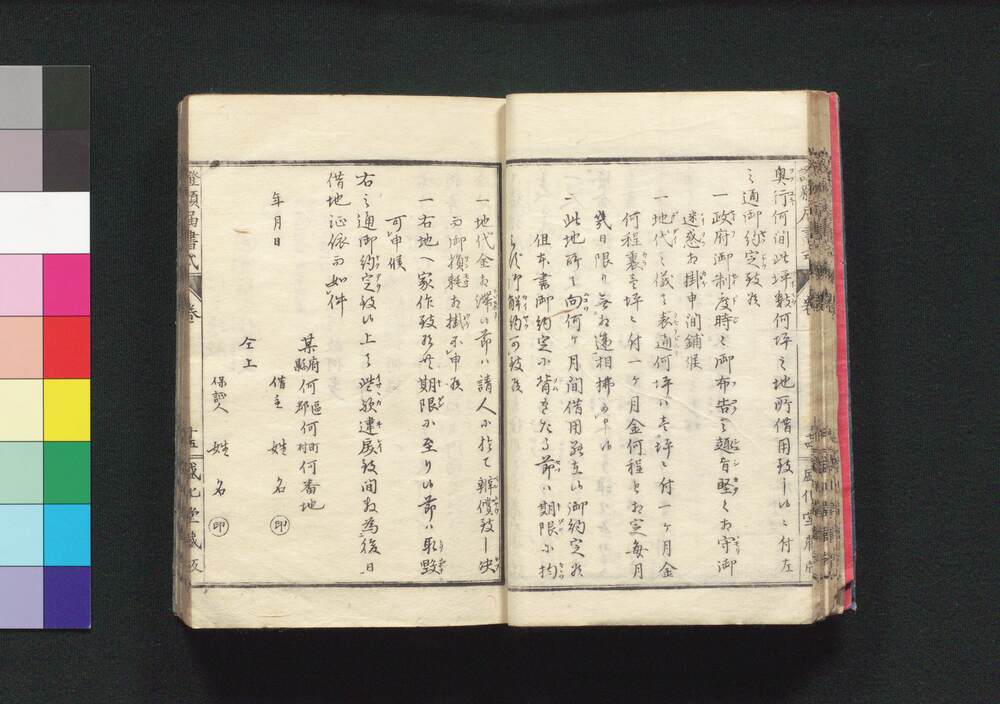 奥行何間此坪数何坪之地所借用致し候ニ付左
之通御約定致候
一政府御制度時々御布告之趣旨堅くお守御
迷惑お掛申間鋪候
一地代之儀ハ表通何坪ハ壱坪ニ付一ヶ月金
何程裏壱坪ニ付一ヶ月金何程とお定毎月
幾日限り無お違相拂可申候
一此地所ニ向何ヶ月間借用致度候御約定候
但本書御約定ニ背きたる節ハ期限ニ拘
らす御解約可致候
一地代金お滞候節ハ請人ニ於て辨償致し决
而御損耗お掛不申候
一右地へ家作致候共期限ニ至り候節ハ取毀
可申候
右之通御約定致候上ハ些額違戻致間敷為後日
借地証依而如件
年月日
某府縣何區郡何町村何番地
借主 姓名 印
仝上
保証人 姓名 印
證願届書式 巻一 十五